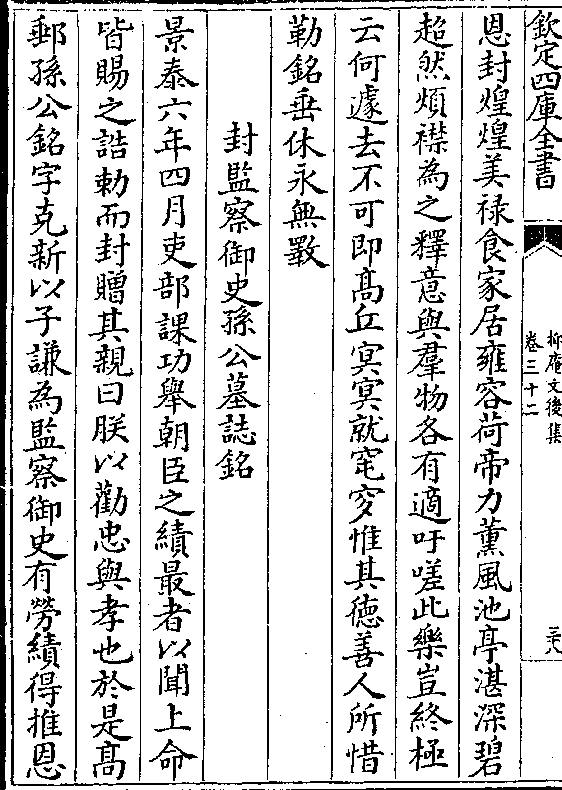 欽定四庫全書
抑庵文後集
卷三十二
三十八
恩封煌煌美祿食家居雍容荷帝力薰風池亭湛深碧
超然煩襟為之釋意與羣物各有適吁嗟此樂豈終極
云何遽去不可即髙丘㝠㝠就窀穸惟其徳善人所惜
勒銘垂休永無斁
封監察御史孫公墓誌銘
景泰六年四月吏部課功舉朝臣之績最者以聞上命
皆賜之誥勅而封贈其親曰朕以勸忠與孝也於是髙
郵孫公銘字克新以子謙為監察御史有勞績得推恩